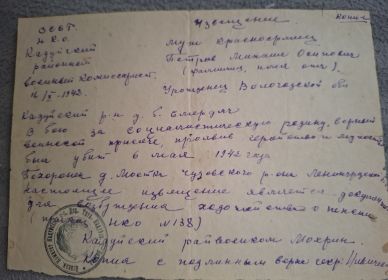 Извещение
Копия
СССР
Н.К.О.
Кадуйский
районный
военный комиссариат.
1942.
Муж красноармеец
Петров Михаил Осипович
(фамилия, имя отч.)
Уроженец Вологодской обл
Кадуйский р-н д. Б. Смердяч
В бою за социалистическую родину, верный
военной присяге, проявив геройство и мужество
был убит 6 мая 1942 года
Похоронен д. Мостки Чудовского р-она Ленинградской
Настоящее извещение является документом
для возбуждения ходатайства о пенсии
НКО №138)
Кадуйский райвоенком Мохрин.
Копия с подлинным верно